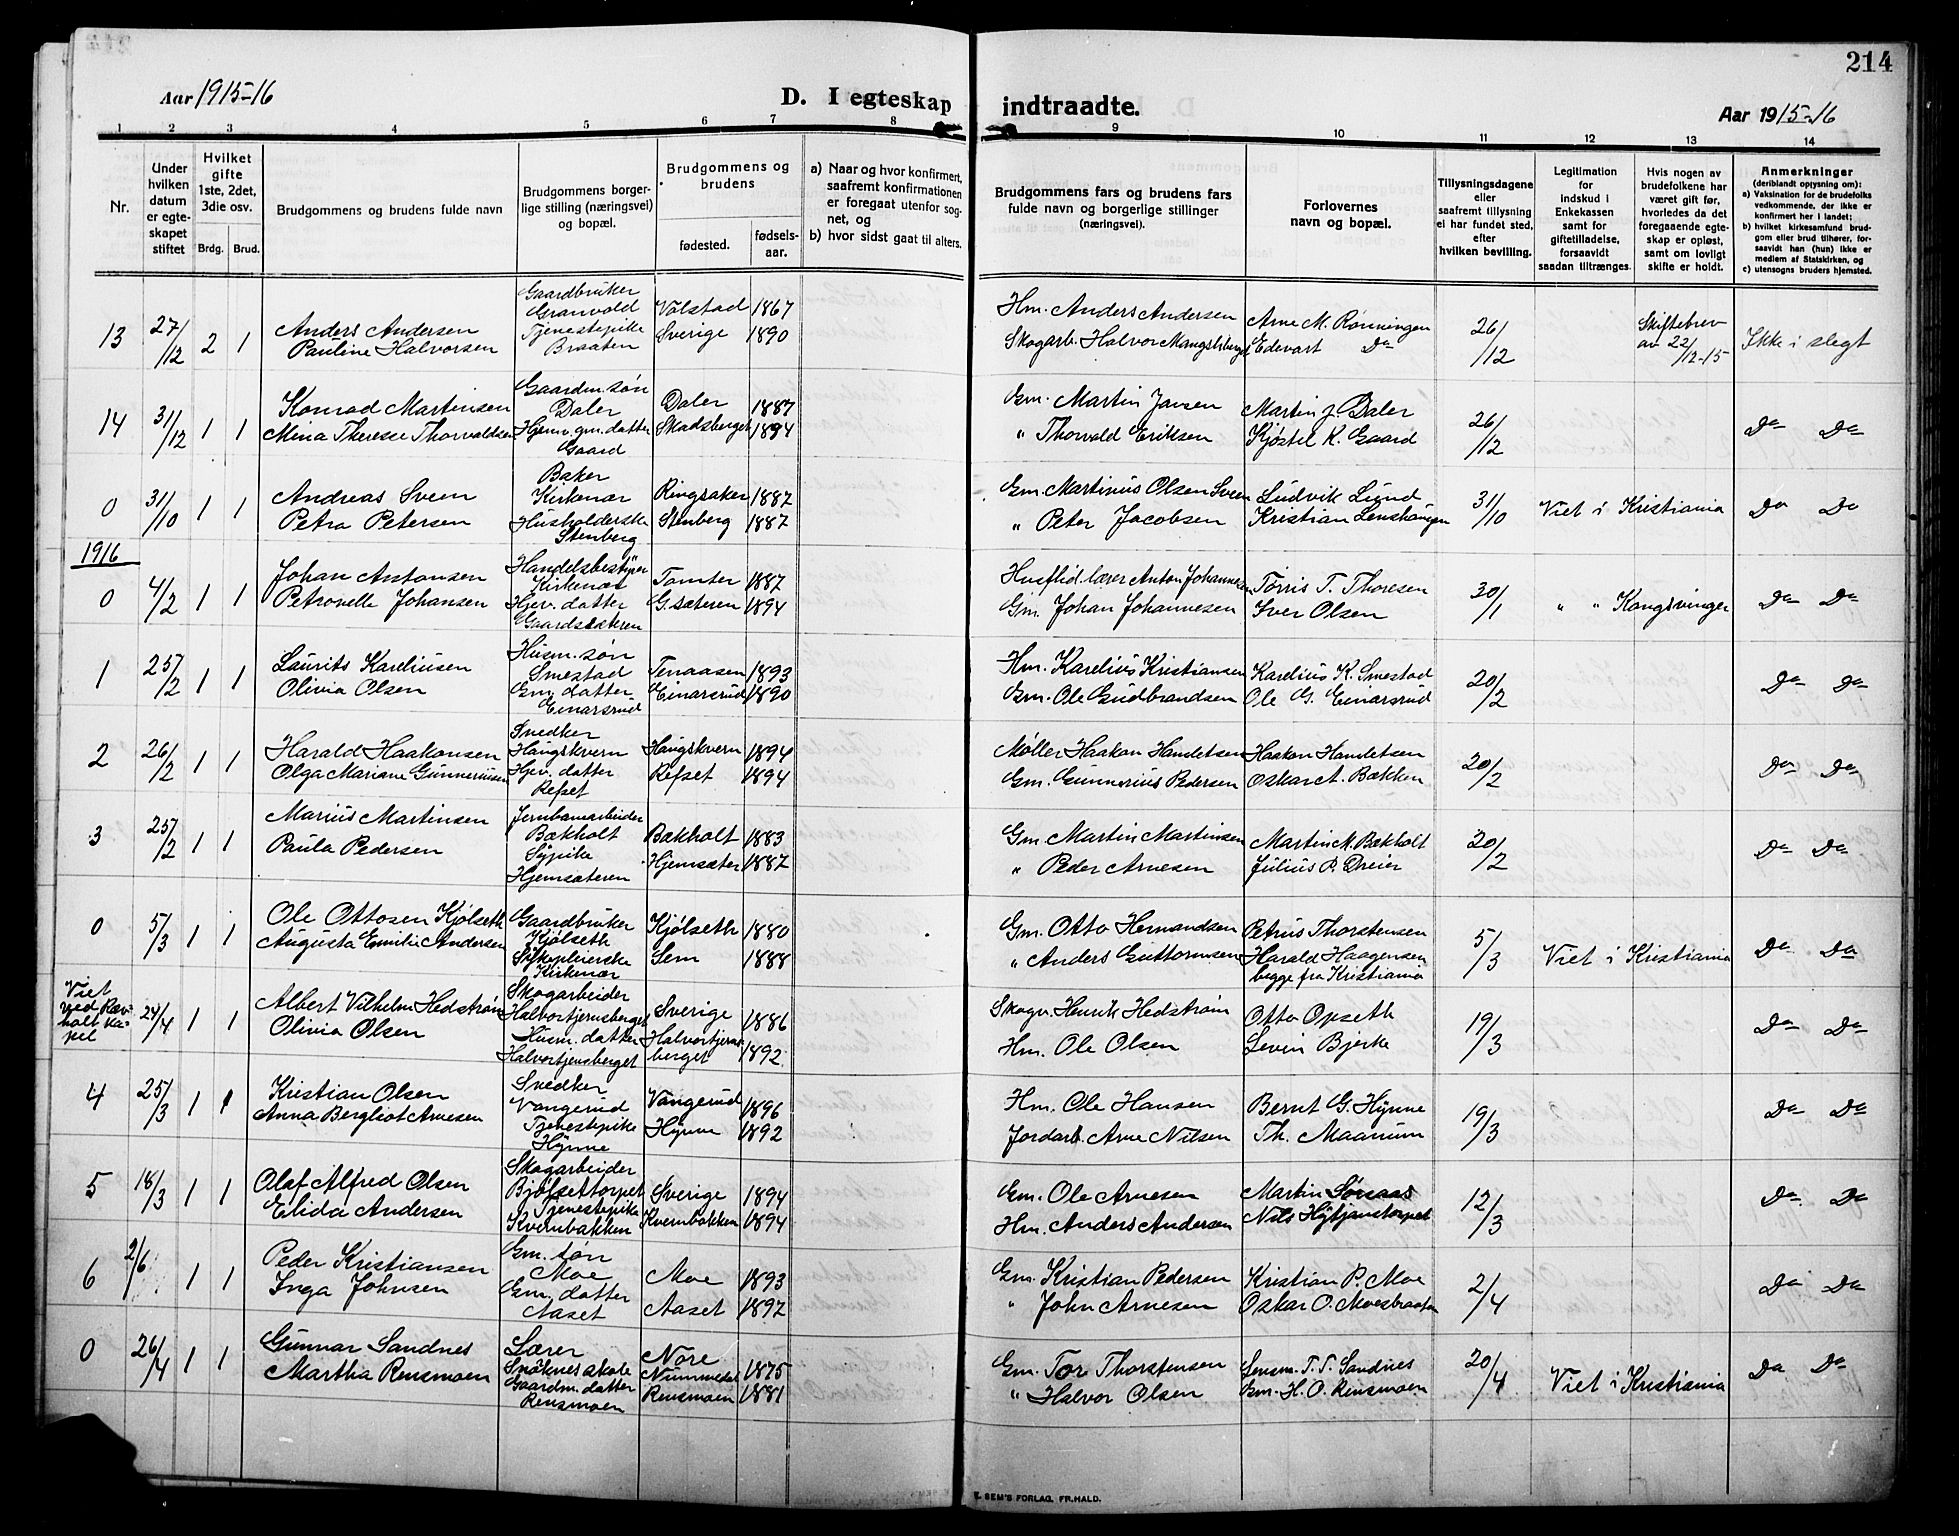 214
Aar 1915-16
D. I egteskap indtraadte.
Aar 1915-16
1 2 3 4 5 6 7 8 9 10 11 12 13 14
Nr.
Under hvilken datum er egteskapet stiftet
Hvilket gifte 1ste, 2det, 3die osv.
Brdg. Brud.
Brudgommens og brudens fulde navn
Brudgommens borgerlige stilling (næringsvei) og bopæl.
Brudgommens og brudens
fødested.
fødselsaar.
a) Naar og hvor konfirmert, saafremt konfirmationen er foregaat utenfor sognet, og
b) hvor sidst gaat til alters.
Brudgommens fars og brudens fars fulde navn og borgerlige stillinger (næringsvei).
Forlovernes navn og bopæl.
Tillysningsdagene eller saafremt tillysning ei har fundet sted, efter hvilken bevilling.
Legitimation for Indskud i Enkekassen samt for giftetilladelse, forsaavidt saadan tiltrænges.
Hvis nogen av brudefolkene har været gift før, hvorledes da det foregaaende egteskap er opløst, samt om lovligt skifte er holdt.
Anmerkninger (deriblandt oplysning om):
a) Vaksination for de brudefolks vedkommende, der ikke er konfirmert her i landet;
b) hvilket kirkesamfund brudgom eller brud tilhører, forsaavidt han (hun) ikke er medlem af Statskirken, og
c) utensogns bruders hjemsted.
13 27/12 2 1 Anders Andersen Gaardbruker Granvold Volstad 1867 Hm. Anders Andersen Arne M. Rønningen 26/12 Skiftebrev av 22/12-15 Ikke i slegt
Pauline Halvorsen Tjenestepike Braaten Sverige 1890 Skogarb. Halvor Mangslsberget Edevart Do
14 31/12 1 1 Konrad Martinsen Gaardm. søn Daler Daler 1887 Gm. Martin Jansen Martin J. Daler 26/12 Do Do
Mina Therese Thorvaldsen Hjemv. gm. datter Gaard Skadsberget 1894 " Thorvald Eriksen Kjøstil K. Gaard
0 31/10 1 1 Andreas Sveen Baker Kirkenær Ringsaker 1887 Gm. Martinus Olsen Sveen Ludvik Lund 31/10 Viet i Kristiania Do Do
Petra Petersen Husholderske Stenberg Stenberg 1887 " Peter Jacobsen Kristian Lenshaugen
1916
0 4/2 1 1 Johan Antonsen Handelsbestyrer Kirkenær Tomter 1887 Husflid.lærer Anton Johannesen Torris T. Thoresen 30/1 " " Kongsvinger Do Do
Petronelle Johansen Hjev. datter Gaardsæteren G.sæteren 1894 Gm. Johan Johannesen Iver Olsen
1 25/2 1 1 Laurits Kareliusen Husm. søn Smestad Tenaasen 1893 Hm. Karelius Kristiansen Karelius K. Smestad 20/2 Do Do
Olivia Olsen Gm. datter Einarsrud Einarsrud 1890 Gm. Ole Gudbrandsen Ole G. Einarsrud
2 26/2 1 1 Harald Haakonsen Snedker Haugskvern Haugskvern 1894 Møller Haakon Handetsen Haakon Handetsen 20/2 Do Do
Olga Mariane Gunneriusen Hjev. datter Refset Refset 1894 Gm. Gunnerius Pedersen Oskar A. Bækken
3 25/2 1 1 Marius Martinsen Jernbanearbeider Bækholt Bækholt 1883 Gm. Martin Martinsen Martin M. Bækholt 20/2 Do Do
Paula Pedersen Sypike Hjemsæteren Hjemsæter 1887 " Peder Arnesen Julius P. Dreier
0 5/3 1 1 Ole Ottosen Kjølseth Gaardbruker Kjølseth Kjølseth 1880 Gm. Otto Hermandsen Petrus Thorstensen 5/3 Viet i Kristiania Do Do
Augusta Emilie Andersen Sykepleierske Kirkenær Sem 1888 " Anders Guttormsen Harald Haagensen begge fra Kristiania
Viet ved Rævholt kapel 24/4 1 1 Albert Vilhelm Hedstrøm Skogarbeider Halvortjernsberget Sverige 1886 Skogv. Henrik Hedstrøm Otto Opseth 19/3 Do Do
Olivia Olsen Husm. datter Halvortjernsberget Halvortjernsberget 1892 Hm. Ole Olsen Levin Bjerke
4 25/3 1 1 Kristian Olsen Snedker Vangerud Vangerud 1896 Hm. Ole Hansen Bernt G. Hynne 19/3 Do Do
Anna Bergliot Arnesen Tjenestepike Hynne Hynne 1892 Jordarb. Arne Nilsen Th. Maanum
5 18/3 1 1 Olaf Alfred Olsen Skogarbeider Bjølsettorpet Sverige 1894 Gm. Ole Arnesen Martin Sørsaas 12/3 Do Do
Elida Andersen Tjenestepike Kvernbakken Kvernbakken 1894 Hm. Anders Andersen Nils Hytjanstorpet
6 2/6 1 1 Peder Kristiansen Gm. søn Moe Moe 1893 Gm. Kristian Pedersen Kristian P. Moe 2/4 Do Do
Inga Johnsen Gm. datter Aaset Aaset 1897 " John Arnesen Oskar O. Moesbraaten
0 26/4 1 1 Gunnar Sandnes Lærer Snöknes skole Nore Nummedal 1875 Gm. Tor Thorstensen Lensm. T. T. Sandnes 20/4 Viet i Kristiania Do Do
Martha Rensmoen Gaardm. datter Rensmoen Rensmoen 1881 " Halvor Olsen Gm. H. O. Rensmoen
E. SEM'S FORLAG, FR.HALD.